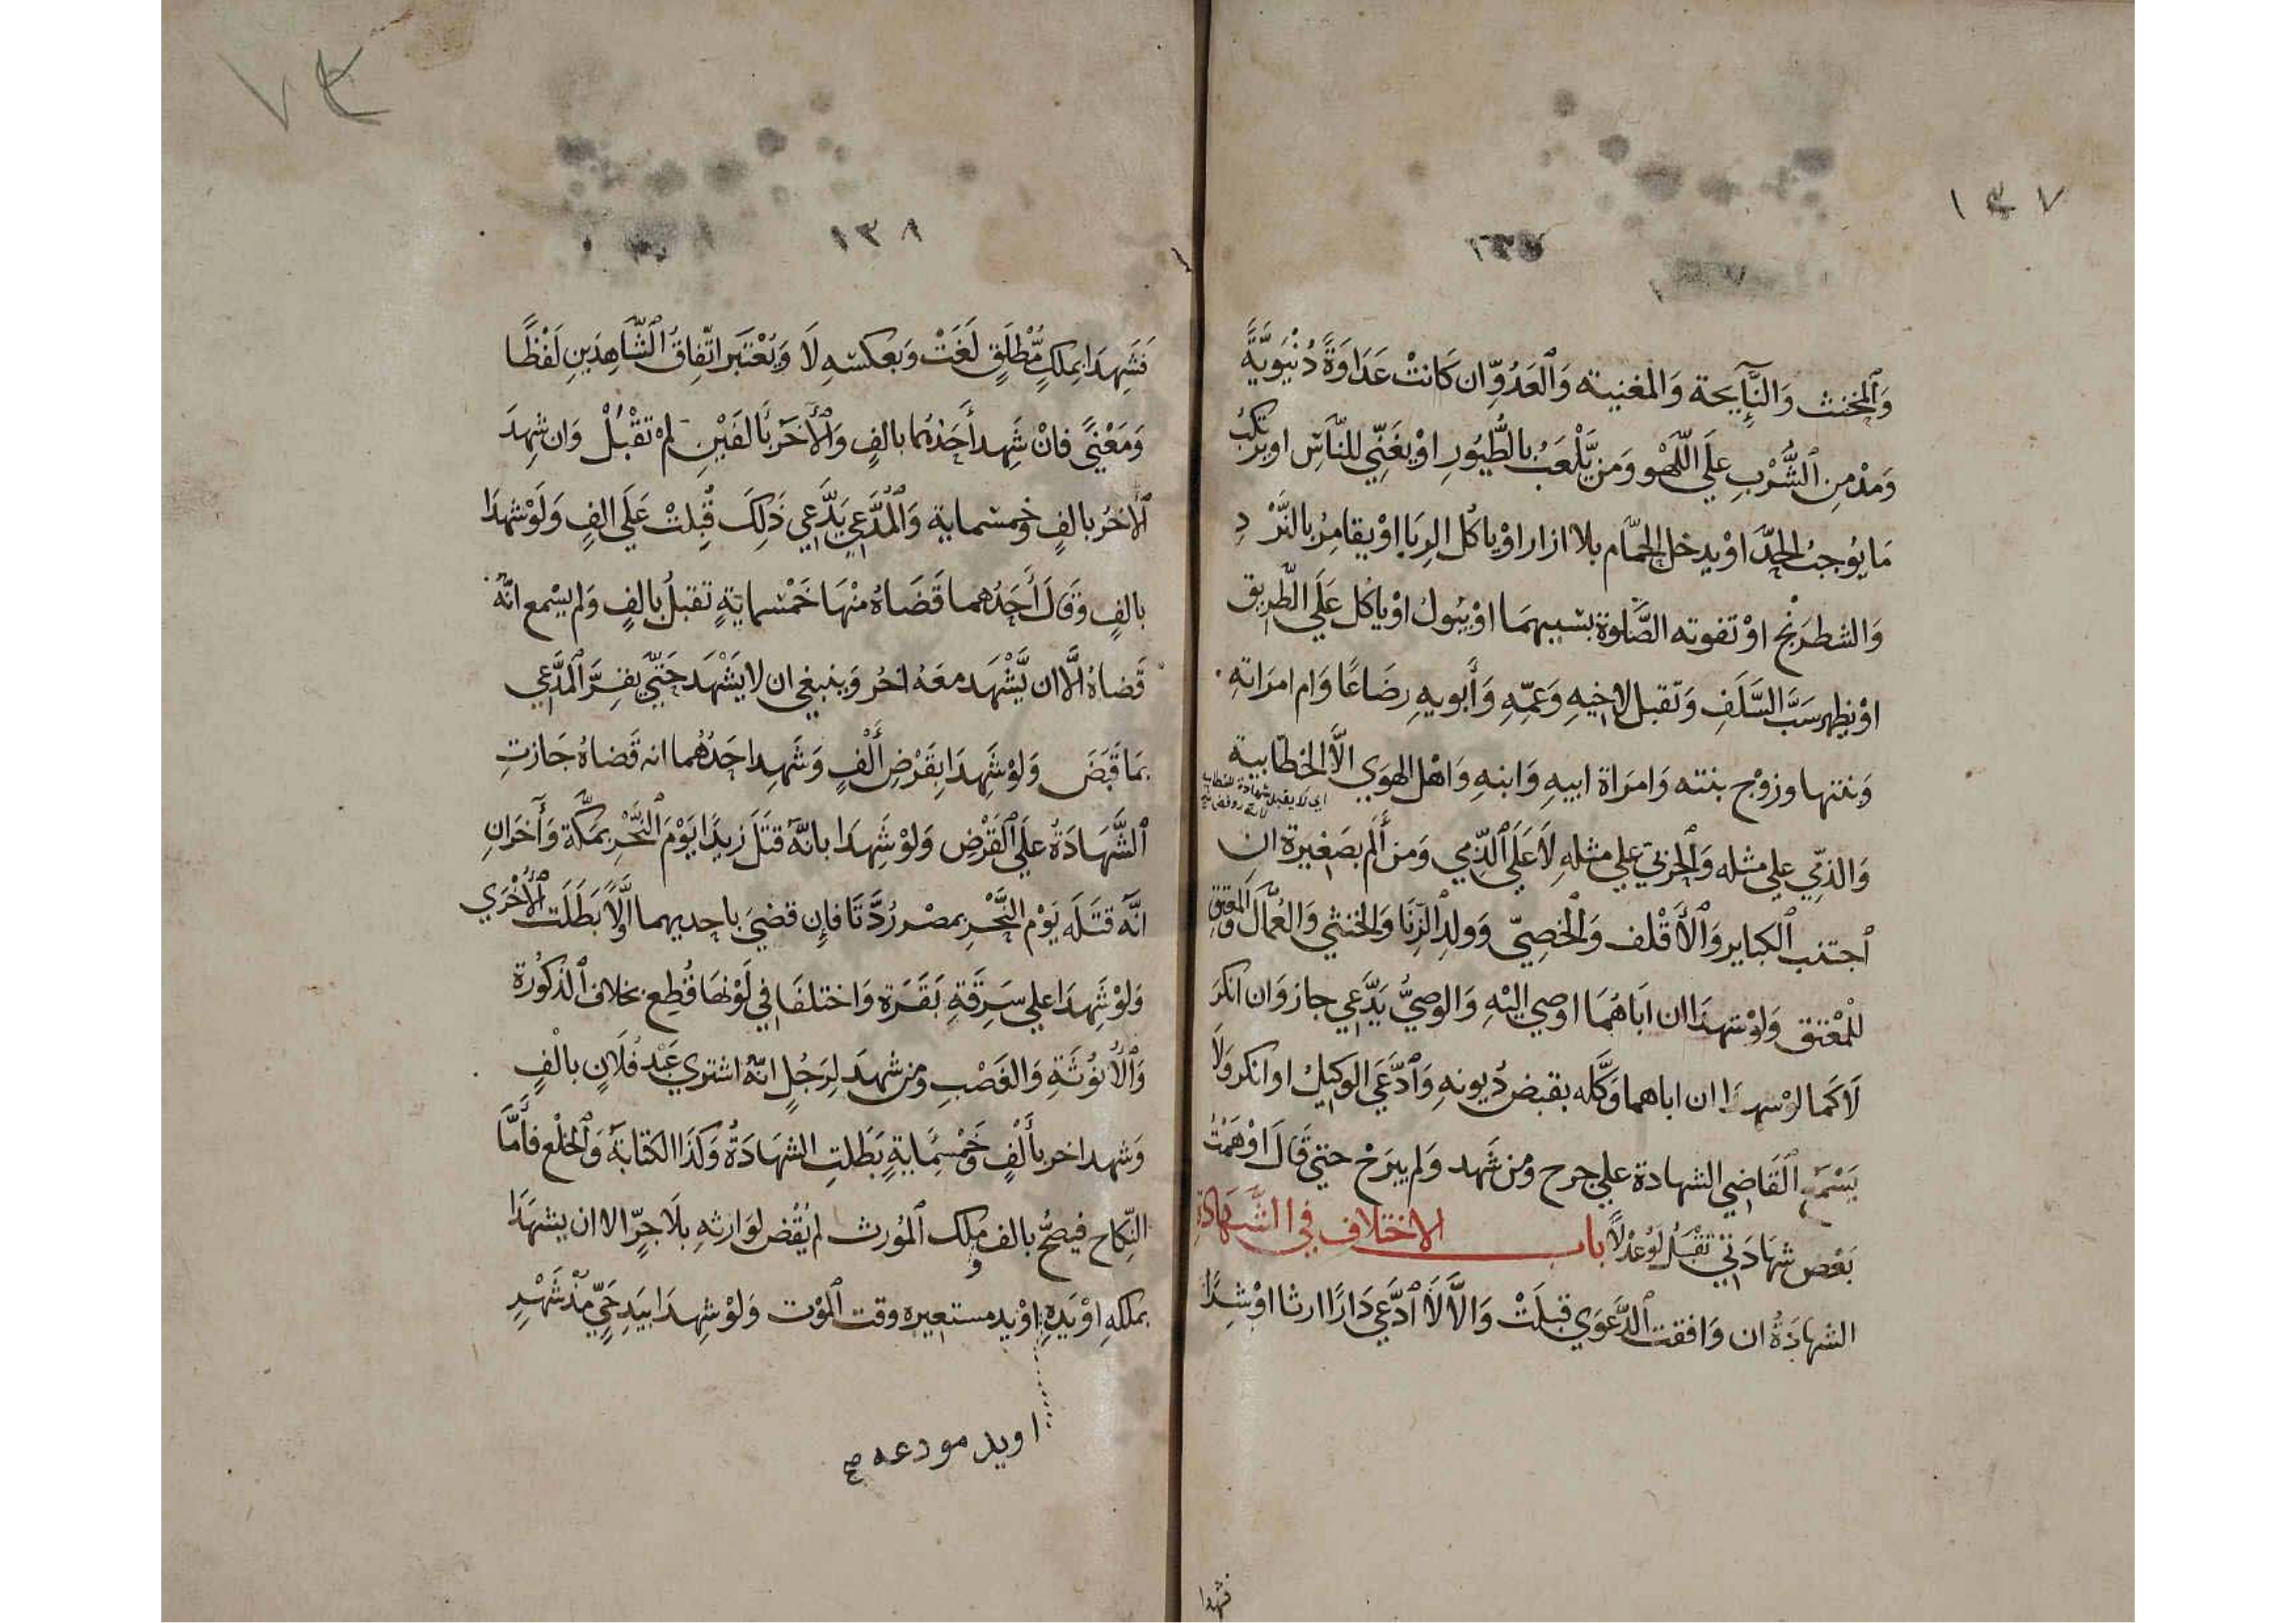 ١٣٧
١٣٧
وَالمخنث وَالنَّآيحة وَالمغنية وَالعَدُوِّ ان كَانتْ عَدَاوَةً دُنْيَوِيَّةً
وَمدْمنِ الشُّرْبِ عَلَي اللَّهْو وَمَن يَّلْعَبُ بالطُّيُورِ اوْ يغَنِّي للنَّاسِ او يرتكبُ
مَا يُوجبُ الحدَّ اوْ يدخل الحمَّام بلا ازار اوْ ياكُل الرِبَا اوْ يقامرُ بالنَّرْدِ
وَالشطرَنْج اوْ تفوته الصَّلوة بسببهمَا اوْ يَبُولُ اوْ ياكل عَلَي الطَّرِيق
اوْ يظهر سَبَّ السَّلَفِ وَتقبل لاخيهِ وَعَمِّهِ وَأبويهِ رضَاعًا وَام امرَاتهِ
وَبنتها وزوْج بنته وَامرَاة ابيهِ وَابنهِ وَاهْل الهوَي الَّا الخطابية
اي لا يقبل شهادة الخطابية
وَالذمّي علي مثله وَالحربيّ علي مثلهِ لَا عَلَي الذِّمي وَمن أَلم بصَغيرة ان
اجتنب الكباير وَالأَقْلف وَالخَصِيّ وَولدِ الزِّنَا وَالخنثي وَالعُمَّال وَالمعتق
للمْعْتق وَلوْ شهدَا ان ابَاهُمَا اوصي اليْهِ وَالوصيُّ يَدَّعي جاز وَان انكرَ
لَا كَمَا لوْ شهدَا ان اباهما وَكَّله بقبض دُيونهِ وَادَّعَي الوَكيلُ او انكر وَلَا
يَسْمَع القَاضِي الشهادة علي جرح وَمن شَهد وَلم يبرَحْ حتي قَالَ اوْهَمْتُ
بَعْض شهَادَتي تقْبَلُ لوْ عدْلًا باب الاختلاف في الشَّهَادَة
الشهادَةُ ان وَافقت الدَّعوَي قبلَتْ وَالَّا لَا ادَّعي دَارًا ارثا اوْ شِرًا
فشهدا
١٣٨
فَشَهِدَا بملكٍ مُّطْلَقٍ لَغَتْ وَبعكسهِ لَا وَيُعْتَبَر اتّفاقُ الشَّاهِدَينِ لَفْظًا
وَمَعْنيً فانْ شَهِد أَحَدُهُما بالفٍ وَالأَخَر بَألفَيْنِ لمْ تقْبَلْ وَان شهِدَ
الأخرُ بالفٍ وَخمسماية وَالمُدَّعي يَدَّعِي ذَلِكَ قُبِلتْ عَلَي الفٍ وَلَوْ شهدَا
بالفٍ وَقَالَ أَحَدُهما قَضَاهُ منْهَا خَمْسمايَةٍ تقبلُ بالفٍ وَلم يسْمع انَّهُ
قَضاهُ الَّا ان يَّشْهَد معَهُ اخرُ وَينبغي ان لا يَشْهَد حَتّي يقِرَّ المدَّعي
بمَا قَبَضَ وَلوْ شَهِدَا بِقَرْضِ أَلْفٍ وَشَهِد احَدُهُما انه قَضاهُ جَازتِ
الشَّهَادَةُ علَي القَرْضِ وَلوْ شَهِدَا بانَّه قتَلَ زيدًا يوْمَ النَّحْرِ بمَكَّة وَأَخرَانِ
انَّه قتَلَه يَوْم النَّحْرِ بمصْر رُدَّتَا فإن قضيَ باحديهما اوَّلًا بَطَلَت الأُخْرَي
وَلوْ شَهِدَا علي سَرِقَةِ بَقَرَة وَاختلفَا في لَوْنهَا قُطِع بخلاف الذكُورة
وَالأُنُوثَةِ وَالغَصْبِ وَمن شهدَ لِرَجُلٍ انَّهُ اشتري عَبْد فُلَانٍ بالْفٍ
وَشهد اخر بأَلْفٍ وَخَمْسِمَايةٍ بَطَلتِ الشهَادَةُ وَكَذَا الكتَابَةُ وَالخلْع فأَمَّا
النّكاح فيصحُّ بالف وَملك المُورث لم يُقْضَ لوَارثهِ بلَا جرِّ الا ان يشهَدَا
بملكهِ اوْ يَدهِ اوْ يد مستعيره وقت الموْت وَلوْ شهِدَا بيَدِ حَيٍّ مذْ شَهْرٍ
او يد مودعه صح